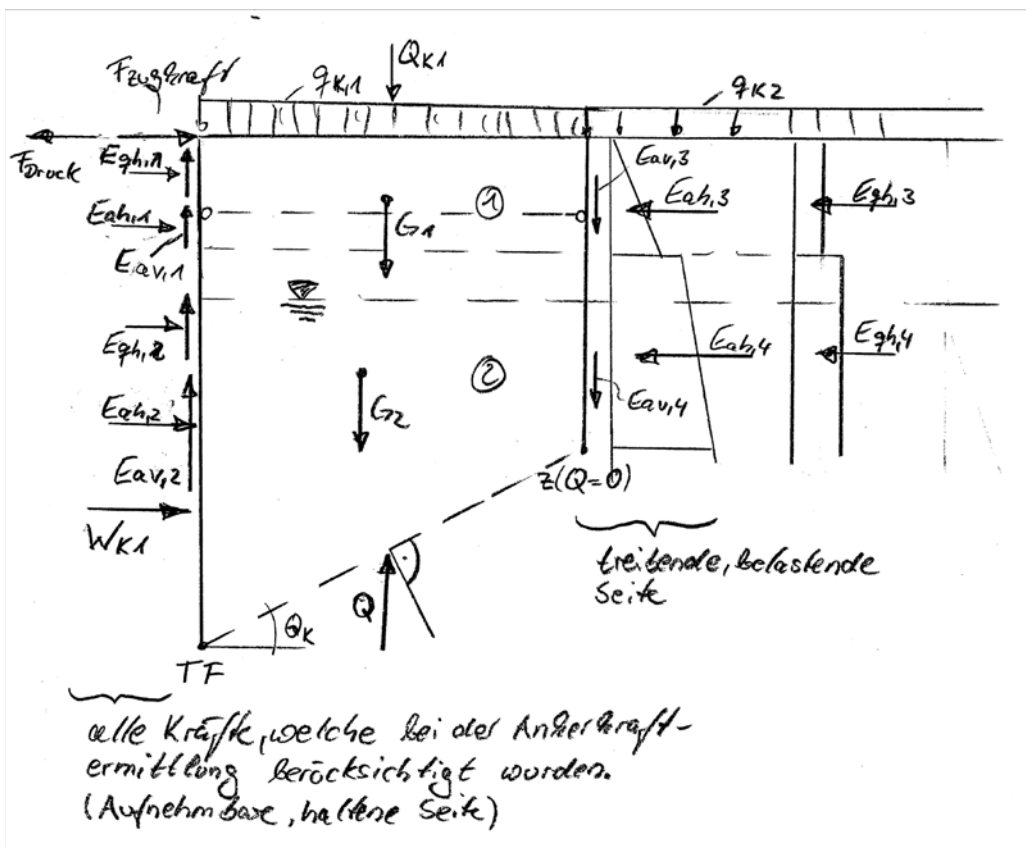 QK1
Fzugkraft
qK,1
qK2
FDruck
Eqh,1
Eav,3
Eah,3
Eqh,3
Eah,1
①
G1
Eav,1
Eqh,2
Eah,4
Eqh,4
②
G2
Eah,2
Eav,4
Eav,2
z(Q=0)
WK1
treibende, belastende
Seite
Q
ΘK
TF
alle Kräfte, welche bei der Ankerkraft-
ermittlung berücksichtigt wurden.
(Aufnehmbare, haltene Seite)